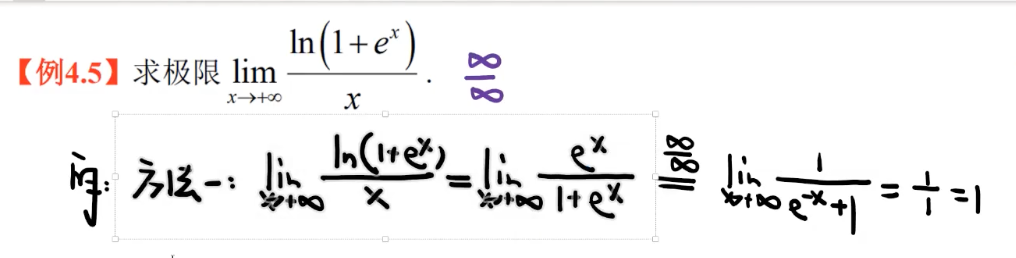 【例4.5】求极限 lim_{x→+∞} ln(1+e^x)/x . ∞/∞
解: 方法一: lim_{x→+∞} ln(1+e^x)/x = lim_{x→+∞} e^x/(1+e^x) =^{∞/∞} lim_{x→+∞} 1/(e^{-x}+1) = 1/1 = 1